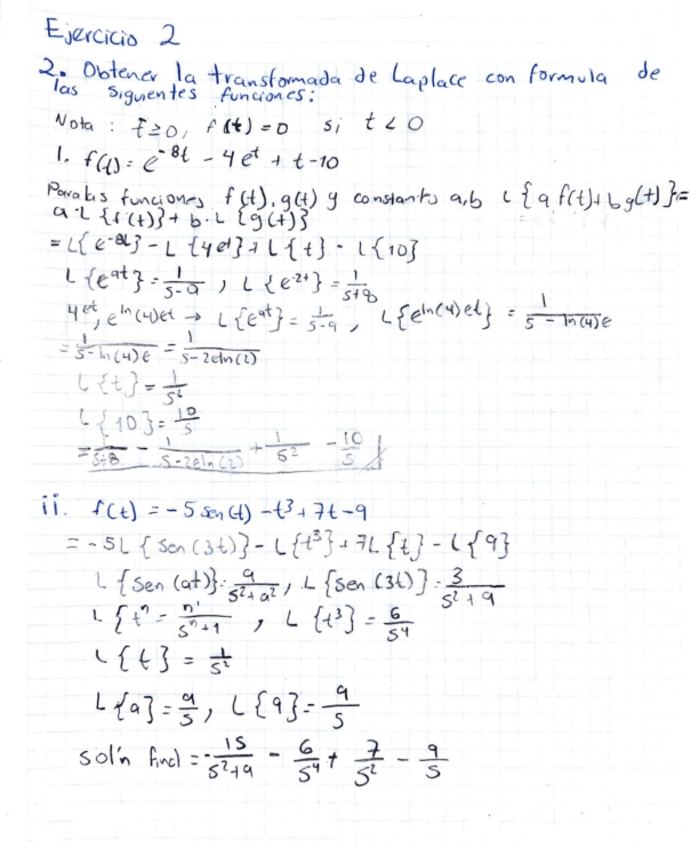 Ejercicio 2
2. Obtener la transformada de Laplace con formula de
las siguientes funciones:
Nota : t≥0, f(t)=0 si t<0
1. f(t)= e^-8t - 4e^t + t-10
Para las funciones f(t), g(t) y constants a,b L{a f(t)+b g(t)}=
a·L{f(t)}+b·L{g(t)}
= L{e^-8t} - L{4e^t}+L{t} - L{10}
L{e^at}=1/(s-a), L{e^-2t}=1/(s+8)
4e^t, e^ln(4)et → L{e^at}=1/(s-a), L{e^ln(4)et} = 1/(s-ln(4)e
= 1/(s-ln(4)e = 1/(s-2eln(2)
L{t}=1/s²
L{10}=10/s
= 1/(s+8) - 1/(s-2eln(2)) + 1/s² - 10/s
ii. f(t) = -5 sen(t) -t³+7t-9
= -5L{sen(3t)}-L{t³}+7L{t}-L{9}
L{sen(at)}=a/(s²+a²), L{sen(3t)}=3/(s²+9)
L{t^n = n!/(s^n+1), L{t³}=6/s⁴
L{t}=1/s²
L{a}=a/s, L{9}=9/s
sol'n final = -15/(s²+9) - 6/s⁴ + 7/s² - 9/s